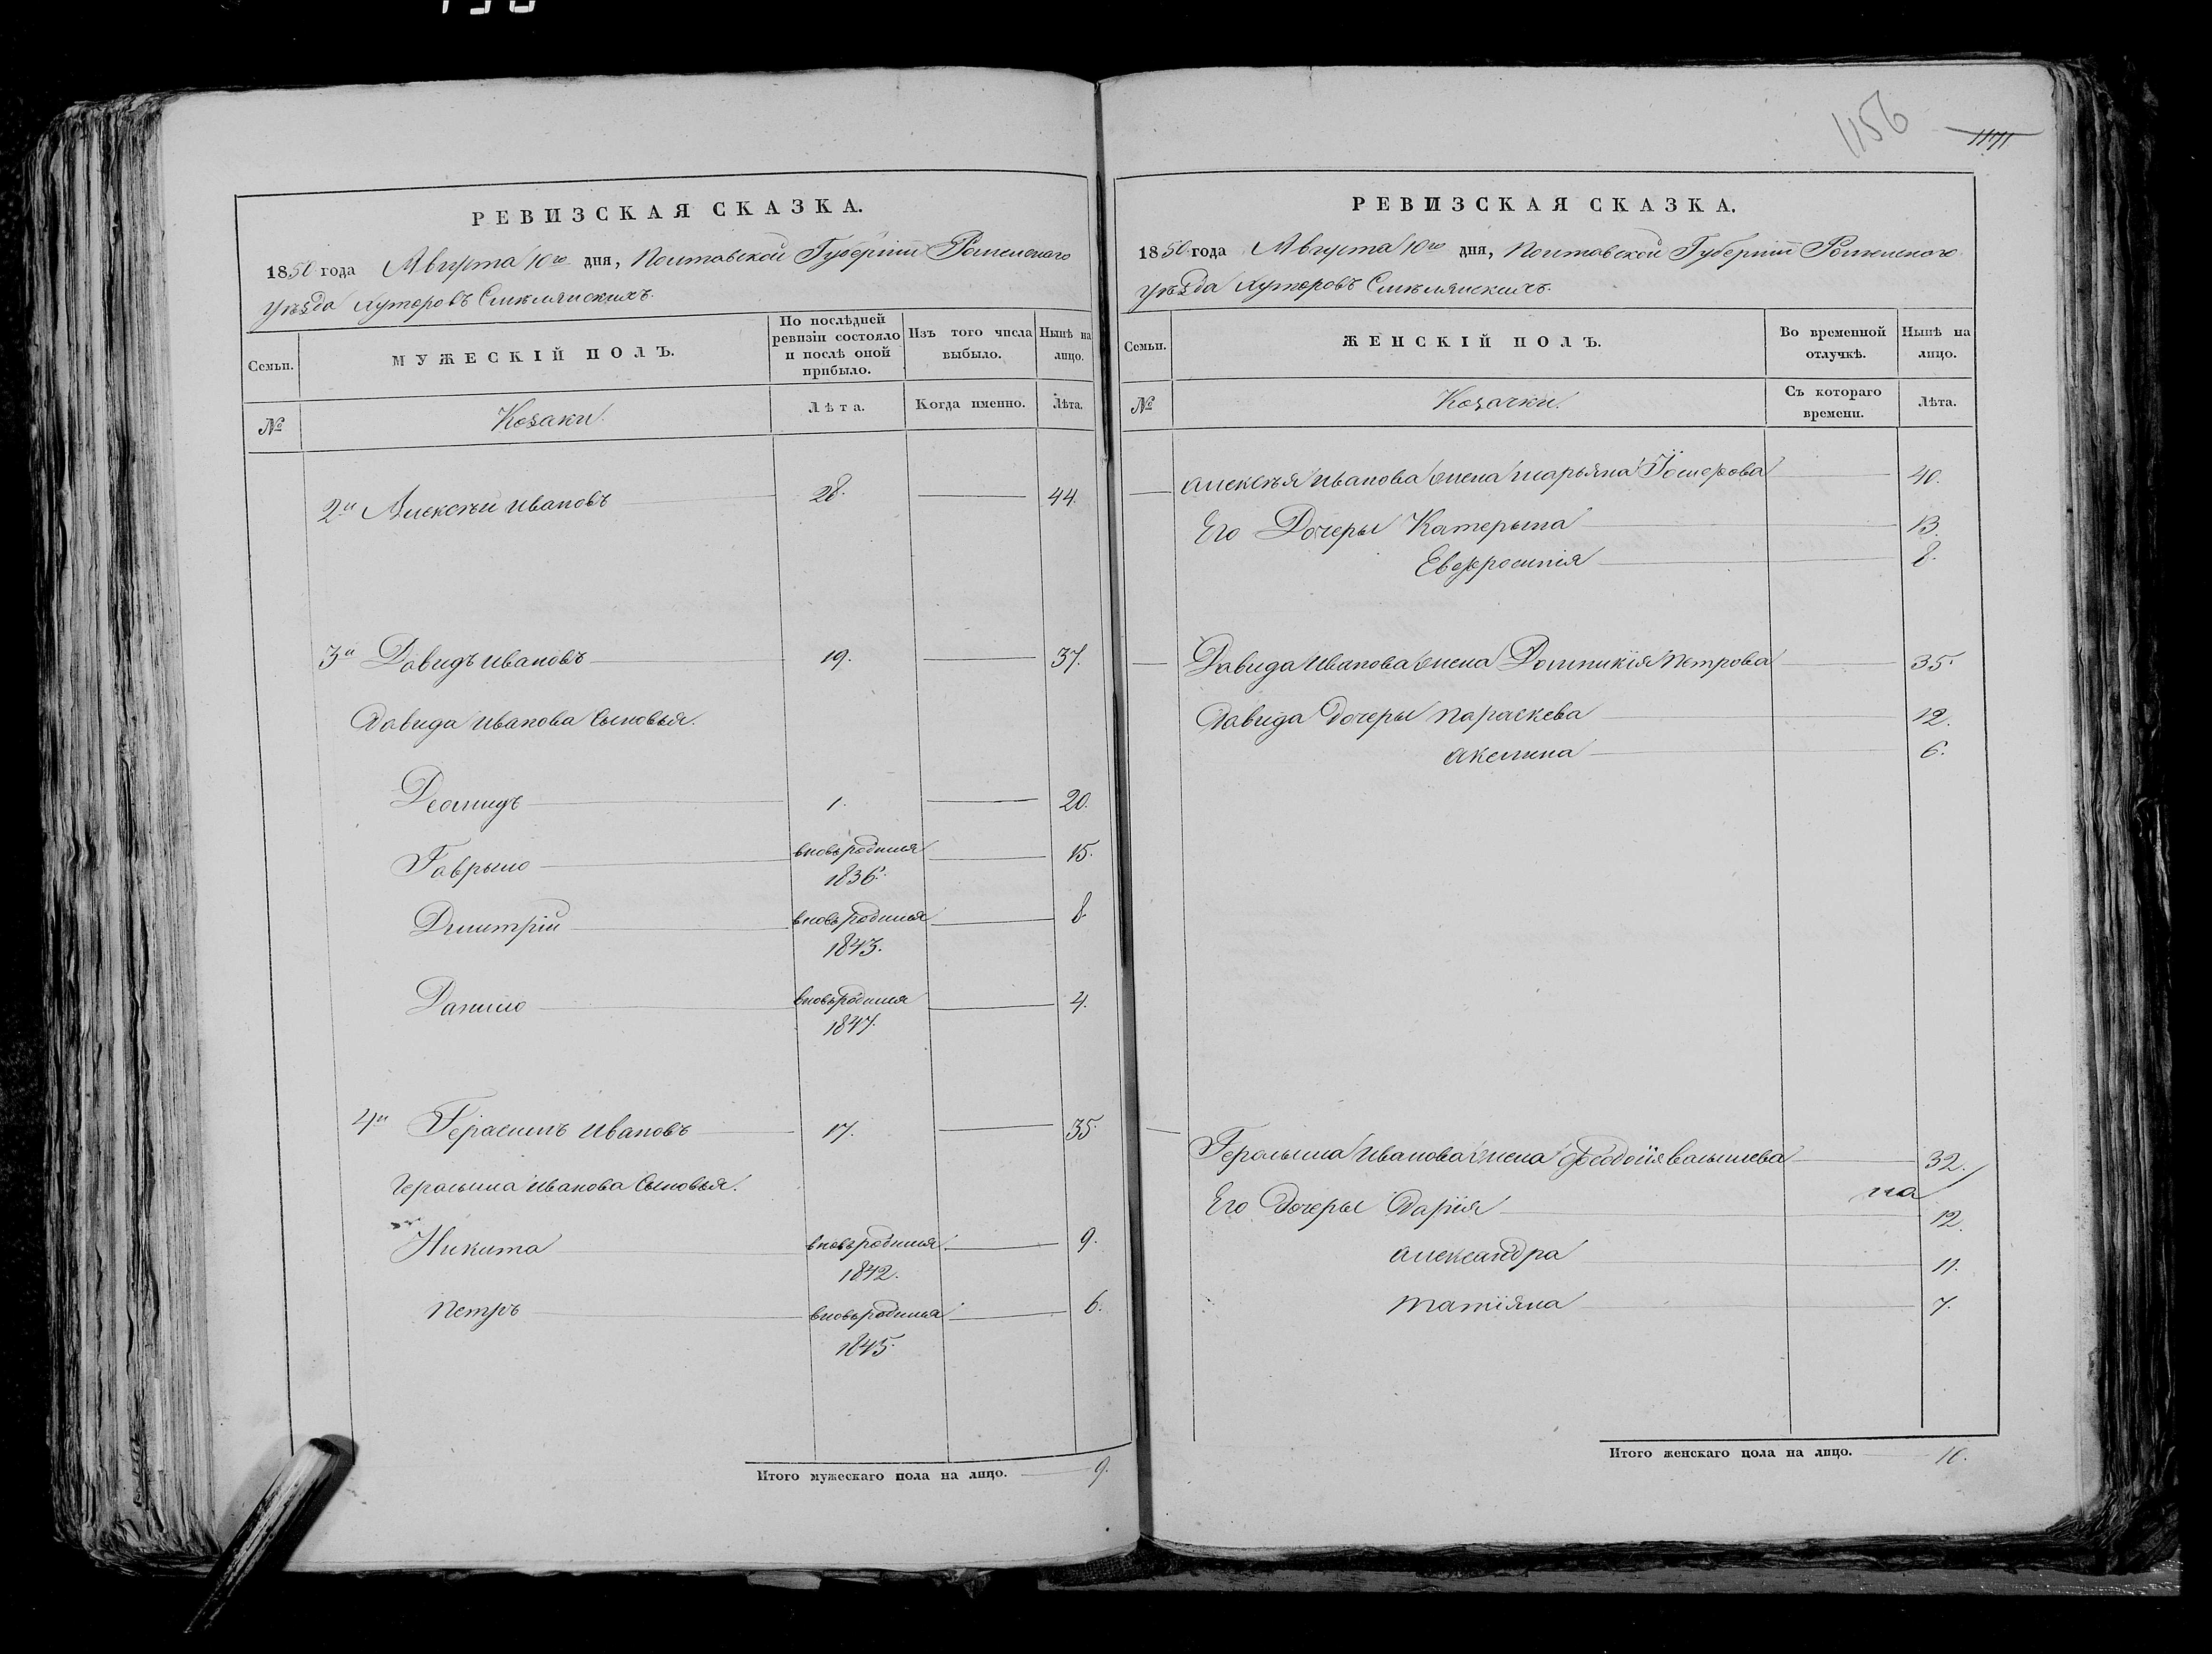 1156
1171
РЕВИЗСКАЯ СКАЗКА.
1850 года Августа 10го дня, Полтавской Губерніи Роменского
уѣзда Хуторовъ Смѣлянскихъ.
Семьи.
МУЖЕСКІЙ ПОЛЪ.
По послѣдней ревизіи состояло и послѣ оной прибыло.
Изъ того числа выбыло.
Нынѣ на лицо.
№
Козаки.
Лѣта.
Когда именно.
Лѣта.
2й Алексѣй Ивановъ 28. 44.
3й Давидъ Ивановъ 19. 37.
Давида Иванова Сыновья.
Деомидъ 1. 20.
Гаврыло вновьродился 15.
1836.
Дмитрій вновьродился 8
1843.
Данило вновьродился 4.
1847.
4й Герасимъ Ивановъ 17. 35.
Герасыма Иванова Сыновья.
Никита вновьродился 9.
1842.
Петръ вновьродился 6.
1845.
Итого мужескаго пола на лицо. 9.
РЕВИЗСКАЯ СКАЗКА.
1850 года Августа 10го дня, Полтавской Губерніи Роменского
уѣзда Хуторовъ Смѣлянскихъ.
Семьи.
ЖЕНСКІЙ ПОЛЪ.
Во временной отлучкѣ.
Нынѣ на лицо.
№
Козачки.
Съ котораго времени.
Лѣта.
Алексѣя Иванова жена Марьяна 40.
Его Дочеры Катерына 13.
Евфросинія 8.
Давида Иванова жена Домникія Петрова 35.
Давида Дочеры Параскева 12.
Акилина 6.
Герасыма Иванова жена Феодосія Васильева 32.
на
Его Дочеры Дарія 12.
Александра 11.
Татіяна 7.
Итого женскаго пола на лицо. 10.